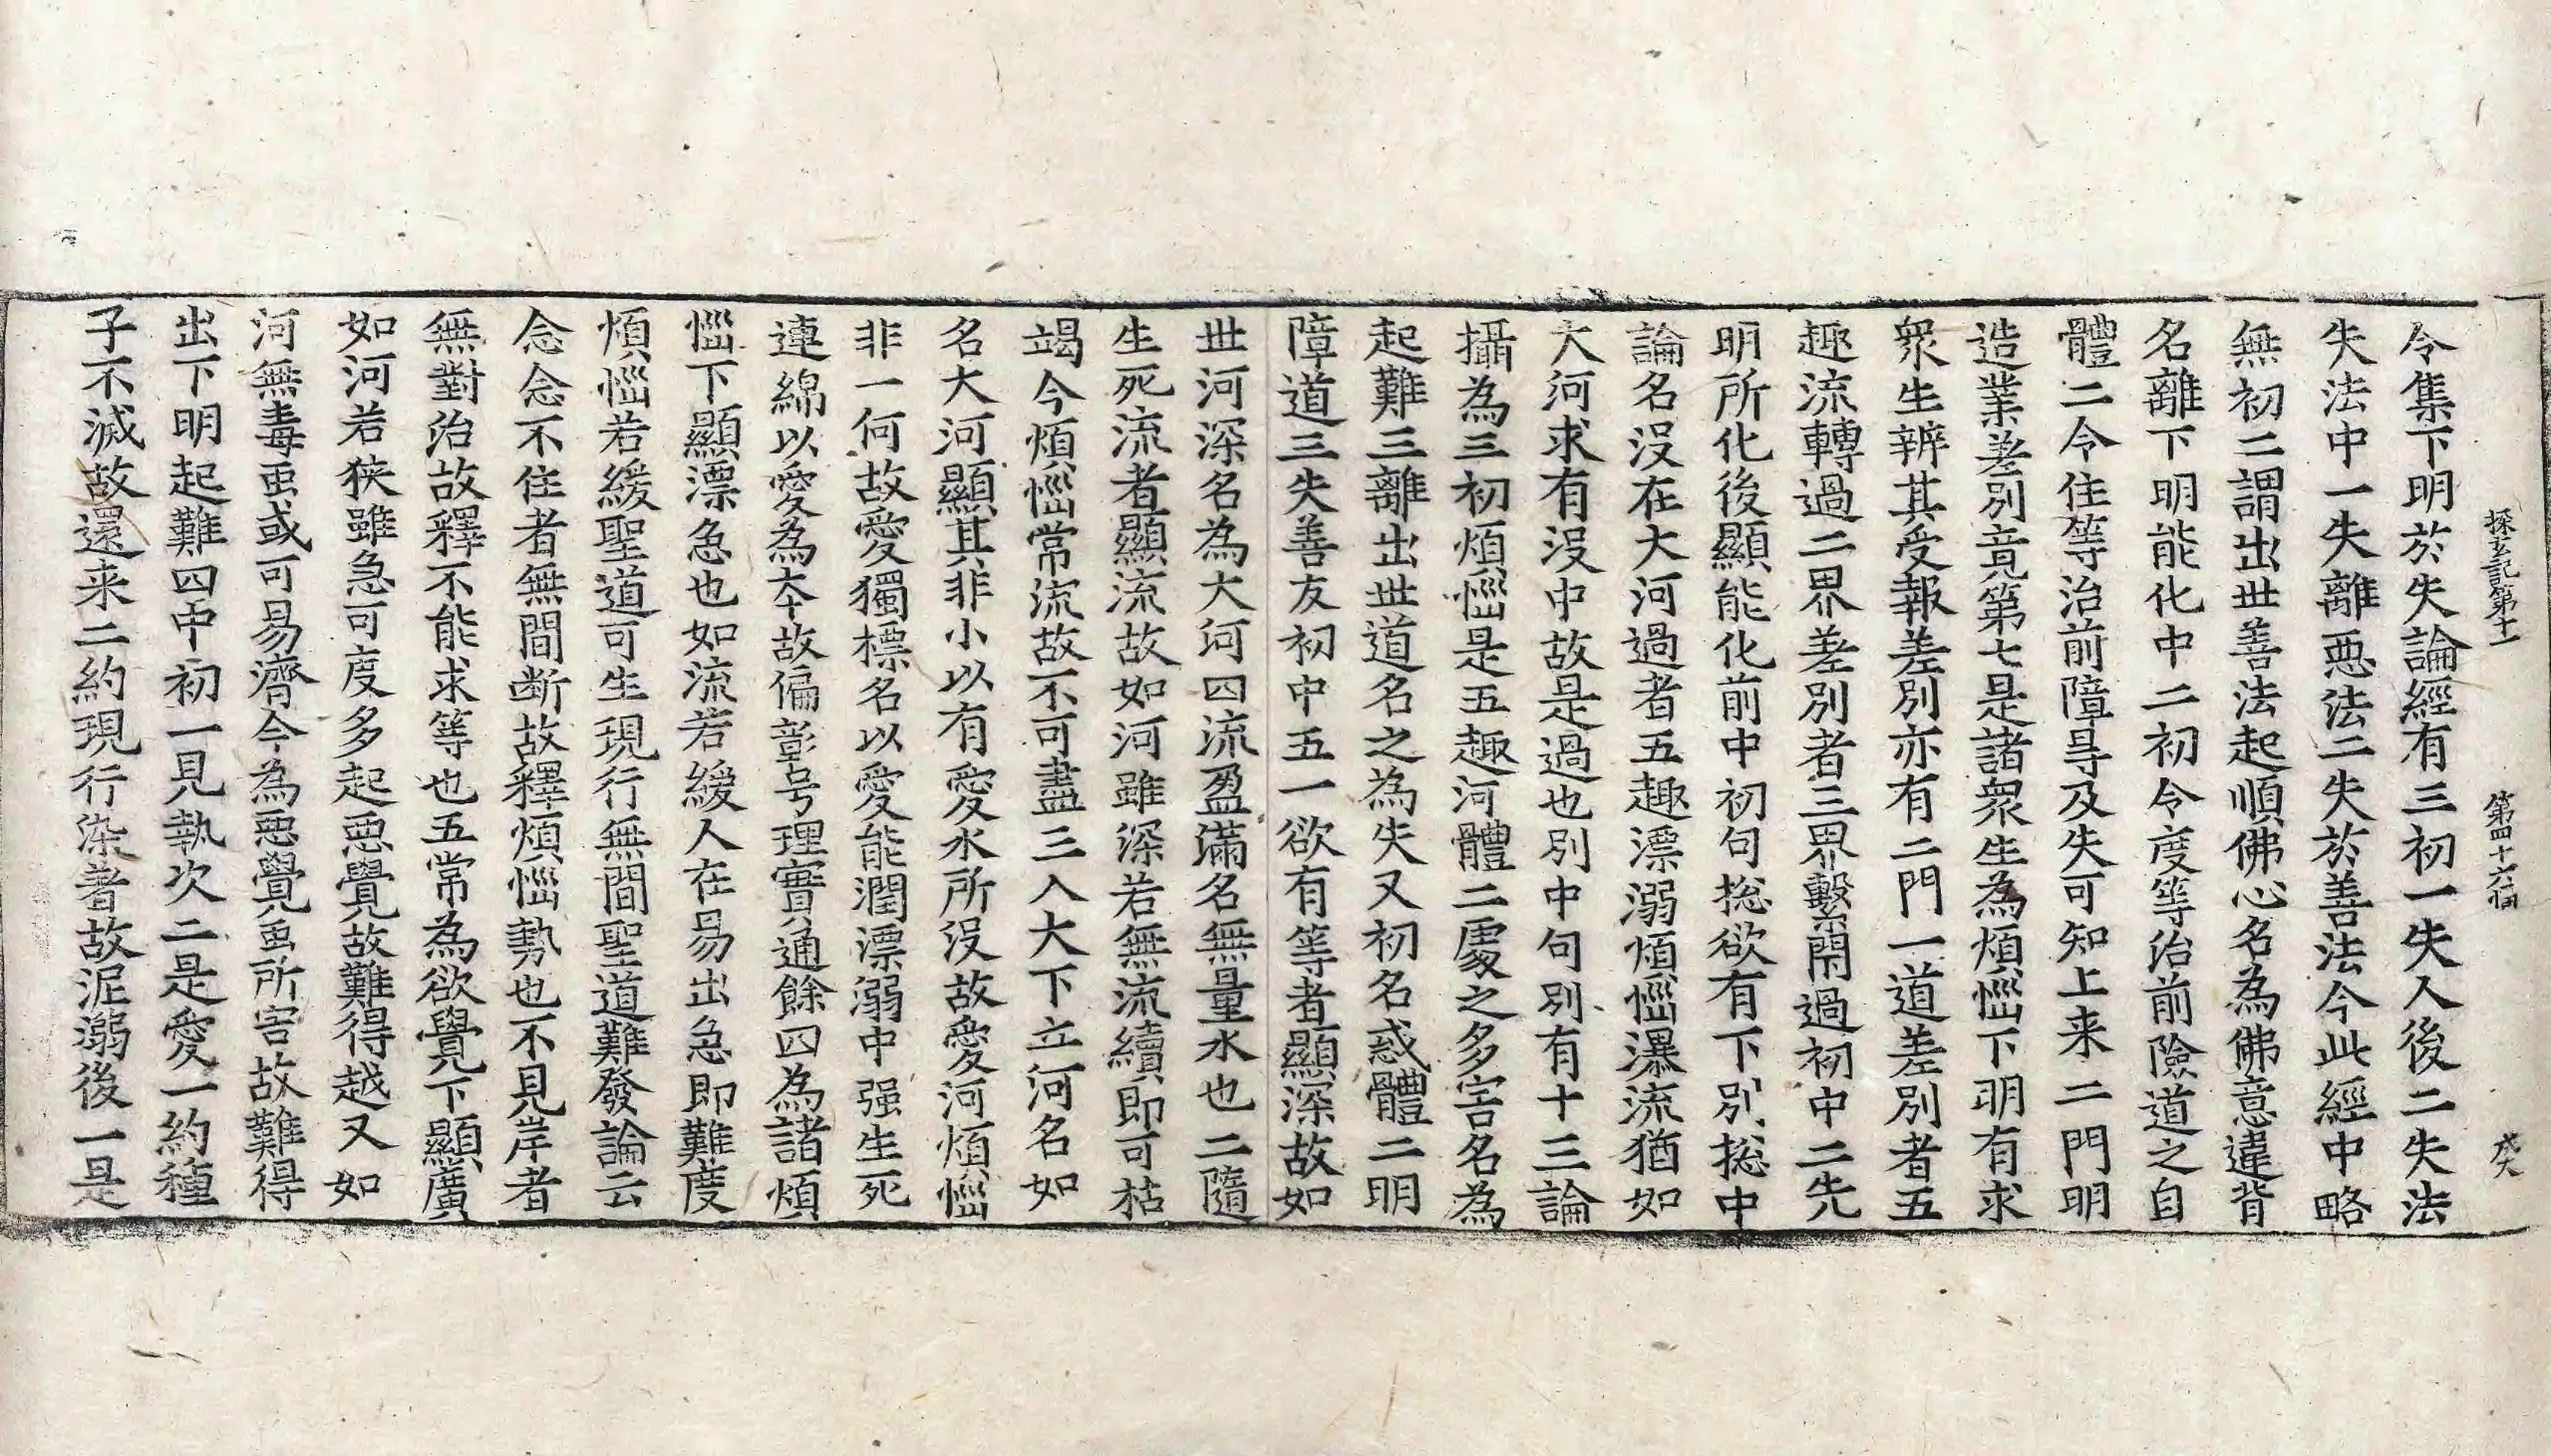 探玄記第十一　第四十六幅　戍
令集下明於失論經有三初一失人後二失法
失法中一失離惡法二失於善法今此經中略
無初二謂出世善法起順佛心名為佛意違背
名離下明能化中二初令度等治前險道之自
體二令住等治前障㝵及失可知上来二門明
造業差別竟第七是諸衆生為煩惱下明有求
衆生辨其受報差別亦有二門一道差別者五
趣流轉過二界差別者三界繫閇過初中二先
明所化後顯能化前中初句捴欲有下別捴中
論名没在大河過者五趣漂溺煩惱瀑流猶如
大河求有没中故是過也別中句別有十三論
攝為三初煩惱是五趣河體二處之多害名為
起難三離出世道名之為失又初名惑體二明
障道三失善友初中五一欲有等者顯深故如
世河深名為大河四流盈滿名無量水也二隨
生死流者顯流故如河雖深若無流續即可枯
竭今煩惱常流故不可盡三入大下立河名如
名大河顯其非小以有愛水所没故愛河煩惱
非一何故愛獨標名以愛能潤漂溺中强生死
連綿以愛為本故偏彰号理實通餘四為諸煩
惱下顯漂急也如流若緩人在易出急即難度
煩惱若緩聖道可生現行無間聖道難發論云
念念不住者無間断故釋煩惱勢也不見岸者
無對治故釋不能求等也五常為欲覺下顯廣
如河若狭雖急可度多起惡覺故難得越又如
河無毒䖝或可易濟今為惡覺䖝所害故難得
出下明起難四中初一見執次二是愛一約種
子不滅故還来二約現行染著故泥溺後一是